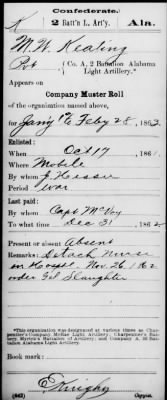 Confederate.
K 2 Batt'n L. Art'y. Ala.
M. W. Keating
Pvt Co. A, 2 Battalion Alabama
Light Artillery.*
Appears on
Company Muster Roll
of the organization named above,
for Jany 1 to Feby 28, 1863.
Enlisted:
When Oct 17, 1861.
Where Mobile
By whom J. Hessee
Period War
Last paid:
By whom Capt McVoy
To what time Dec 31, 1862
Present or absent Absent
Remarks: Detach Nurse
in Hospt. Nov. 26 1862
order Gl Slaughter
*This organization was designated at various times as Charpentier's Company McRae Light Artillery, Charpentier's Battery,
Book mark:
(642) Copyist.